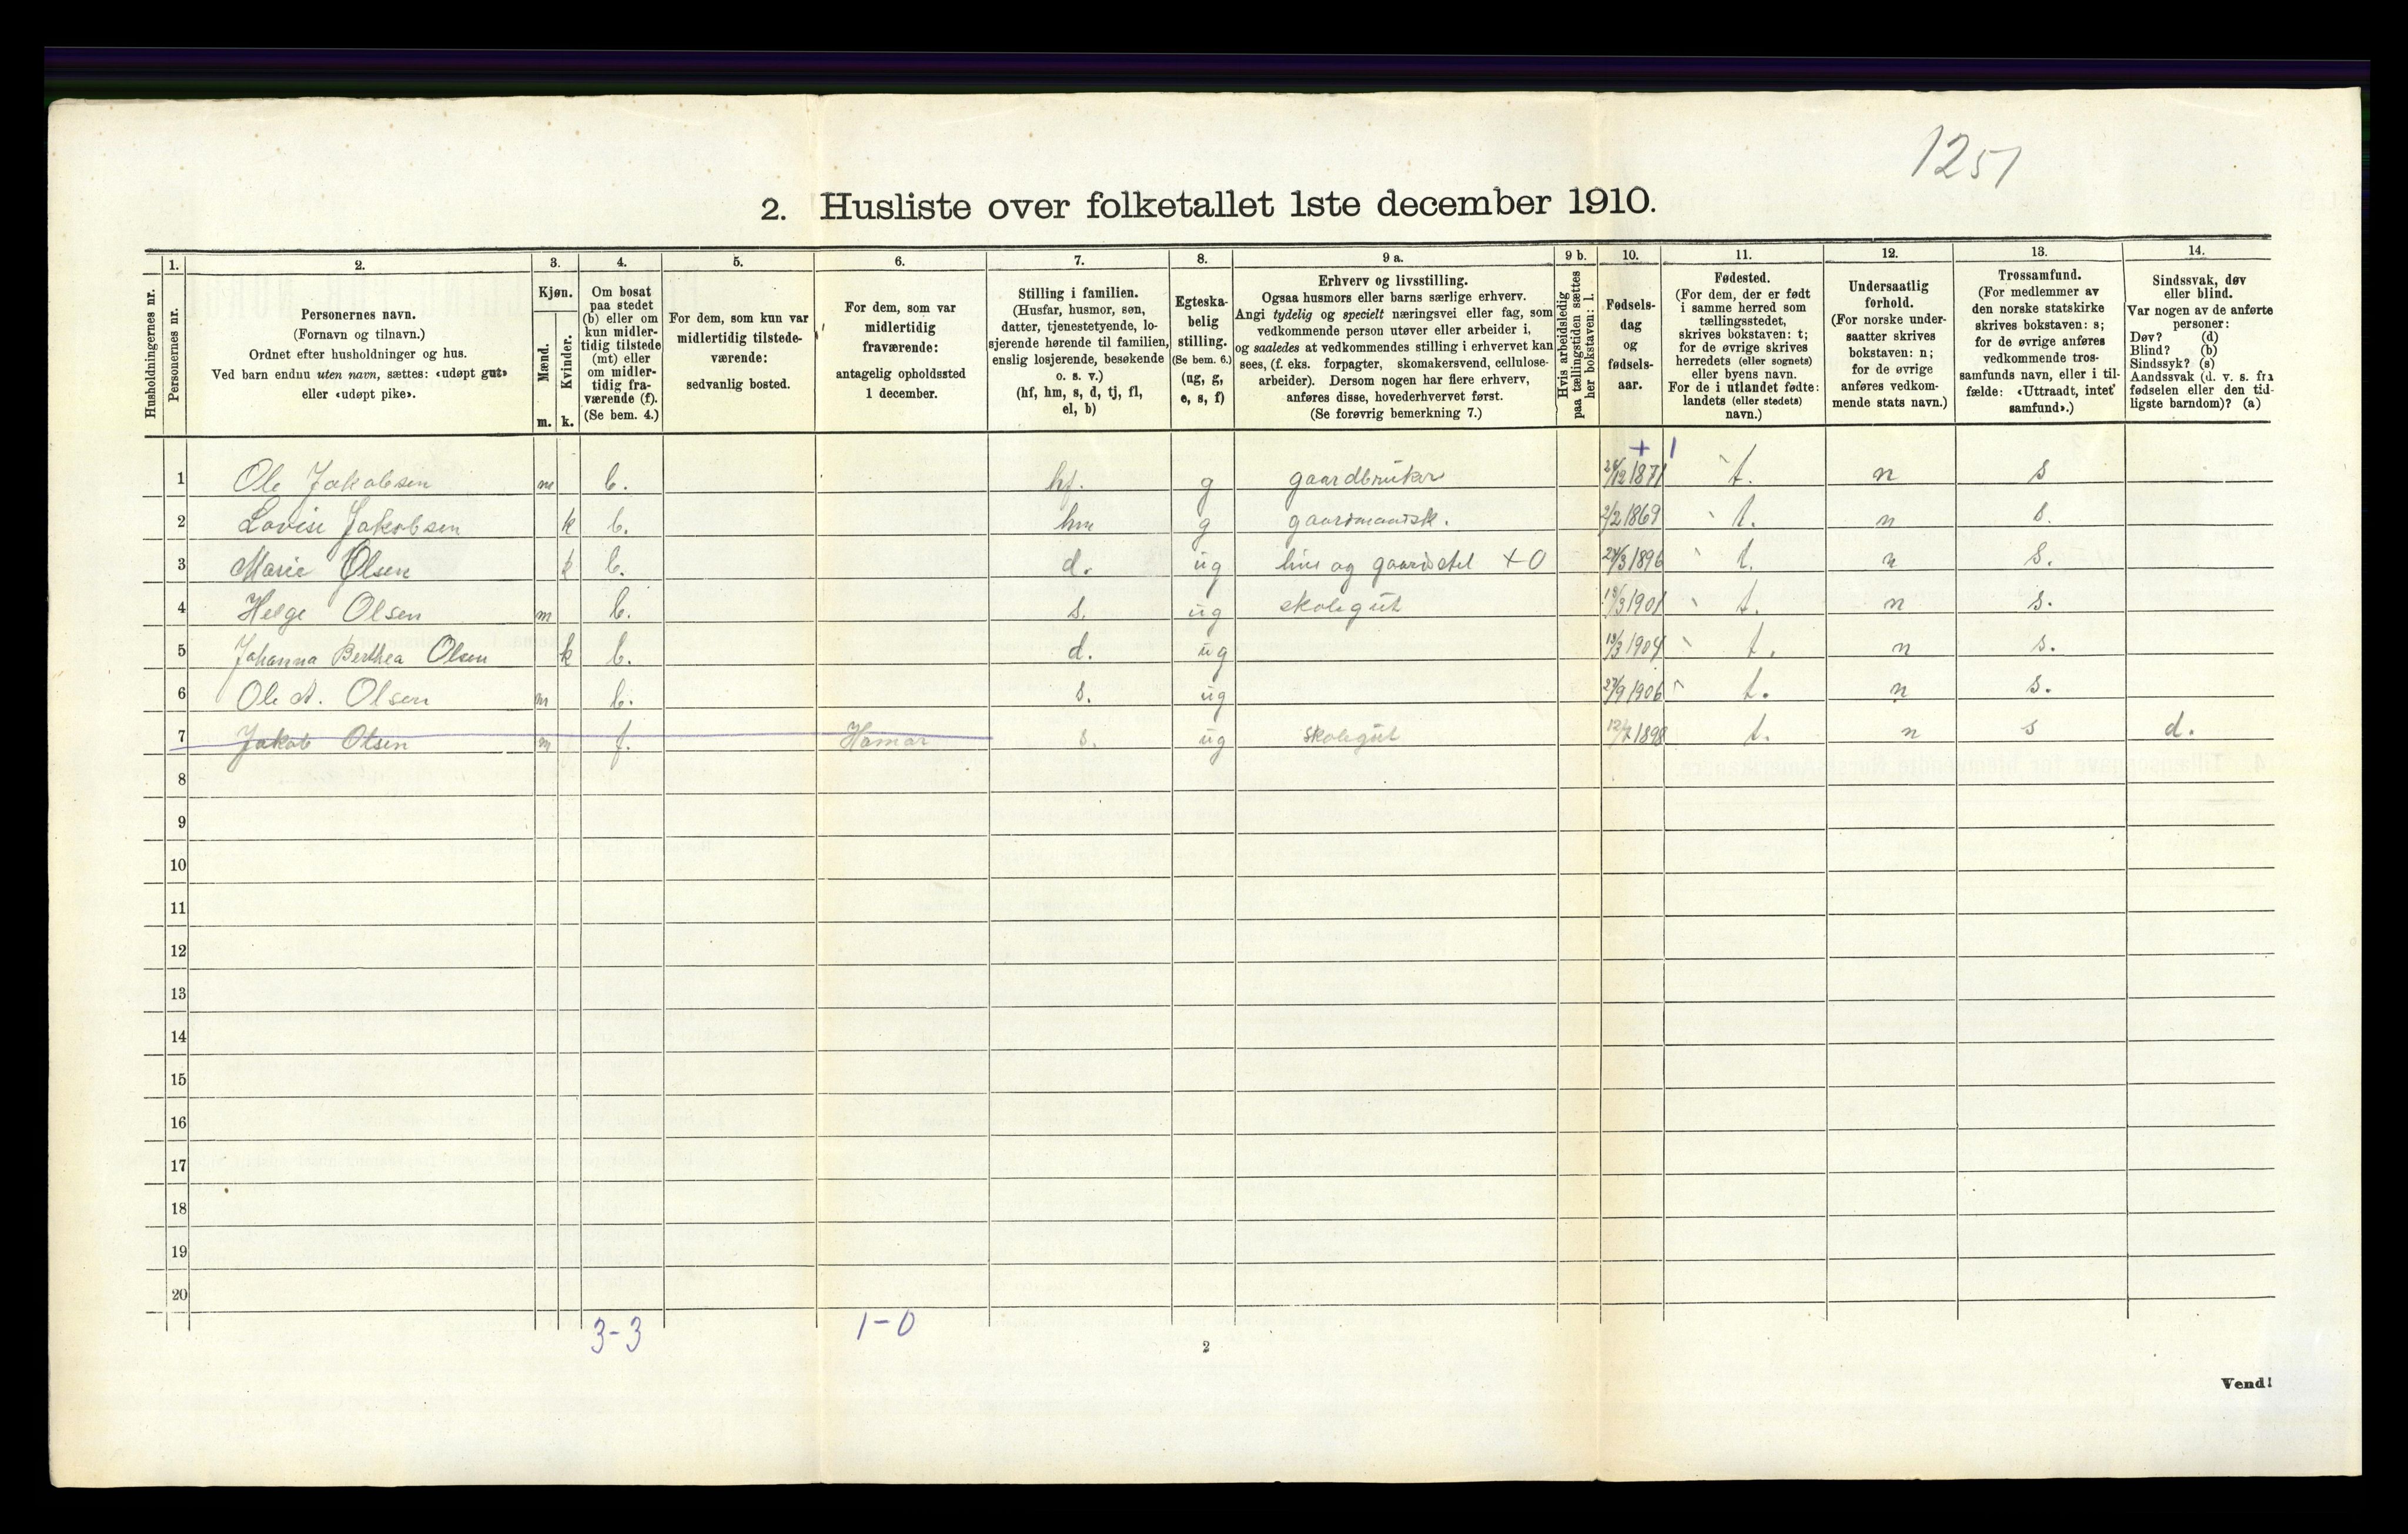 1251
2. Husliste over folketallet 1ste december 1910.
Husholdningernes nr.
1.
Personernes nr.
2.
Personernes navn.
(Fornavn og tilnavn.)
Ordnet efter husholdninger og hus.
Ved barn endnu uten navn, sættes: «udøpt gut»
eller «udøpt pike».
3.
Kjøn.
Mænd.
Kvinder.
m. k.
4.
Om bosat
paa stedet
(b) eller om
kun midler-
tidig tilstede
(mt) eller
om midler-
tidig fra-
værende (f).
(Se bem. 4.)
5.
For dem, som kun var
midlertidig tilstede-
værende:
sedvanlig bosted.
6.
For dem, som var
midlertidig
fraværende:
antagelig opholdssted
1 december.
7.
Stilling i familien.
(Husfar, husmor, søn,
datter, tjenestetyende, lo-
sjerende hørende til familien,
enslig losjerende, besøkende
o. s. v.)
(hf, hm, s, d, tj, fl,
el, b)
8.
Egteska-
belig
stilling.
(Se bem. 6.)
(ug, g,
e, s, f)
9 a.
Erhverv og livsstilling.
Ogsaa husmors eller barns særlige erhverv.
Angi tydelig og specielt næringsvei eller fag, som
vedkommende person utøver eller arbeider i,
og saaledes at vedkommendes stilling i erhvervet kan
sees, (f. eks. forpagter, skomakersvend, cellulose-
arbeider). Dersom nogen har flere erhverv,
anføres disse, hovederhvervet først.
(Se forøvrig bemerkning 7.)
9 b.
Hvis arbeidsledig
paa tællingstiden sættes
her bokstaven: l.
10.
Fødsels-
dag
og
fødsels-
aar.
11.
Fødested.
(For dem, der er født
i samme herred som
tællingsstedet,
skrives bokstaven: t;
for de øvrige skrives
herredets (eller sognets)
eller byens navn.
For de i utlandet fødte:
landets (eller stedets)
navn.)
12.
Undersaatlig
forhold.
(For norske under-
saatter skrives
bokstaven: n;
for de øvrige
anføres vedkom-
mende stats navn.)
13.
Trossamfund.
(For medlemmer av
den norske statskirke
skrives bokstaven: s;
for de øvrige anføres
vedkommende tros-
samfunds navn, eller i til-
fælde: «Uttraadt, intet
samfund».)
14.
Sindssvak, døv
eller blind.
Var nogen av de anførte
personer:
Døv? (d)
Blind? (b)
Sindssyk? (s)
Aandssvak (d. v. s. fra
fødselen eller den tid-
ligste barndom)? (a)
+ 1
1 Ole Jakobsen m b. hf. g gaardbruker 24/12 1871 t. n s
2 Lovise Jakobsen k b. hm g 2/2 1869 t. n s.
3 Marie Olsen k b. d. ug hus og gaardstel +0 24/3 1896 t. n s.
4 Helge Olsen m b. s. ug skolegut 1901 t. n s.
5 Johanna Berthea Olsen k b. d. ug 13/3 1904 t. n s.
6 Ole A. Olsen m b. s. ug 27/9 1906 t. n s.
7 Jakob Olsen m f. Hamar s. ug skolegut 12/7 1898 t. n s d.
8
9
10
11
12
13
14
15
16
17
18
19
20
3-3 1-0
2
Vend!